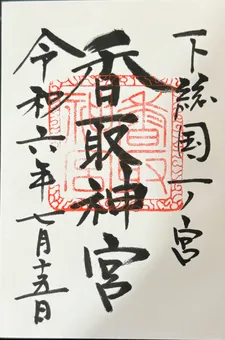 下総国一ノ宮
香取神宮
令和六年七月十五日